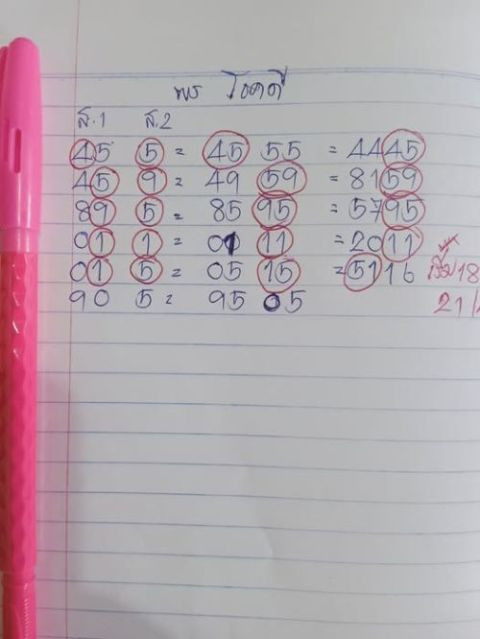 พร โชคดี
ส.1 ส.2
45 5 = 45 55 = 4445
45 9 = 49 59 = 8159
89 5 = 85 95 = 5795
01 1 = 01 11 = 2011
01 5 = 05 15 = 5116 เริ่ม 18
90 5 = 95 05 21/